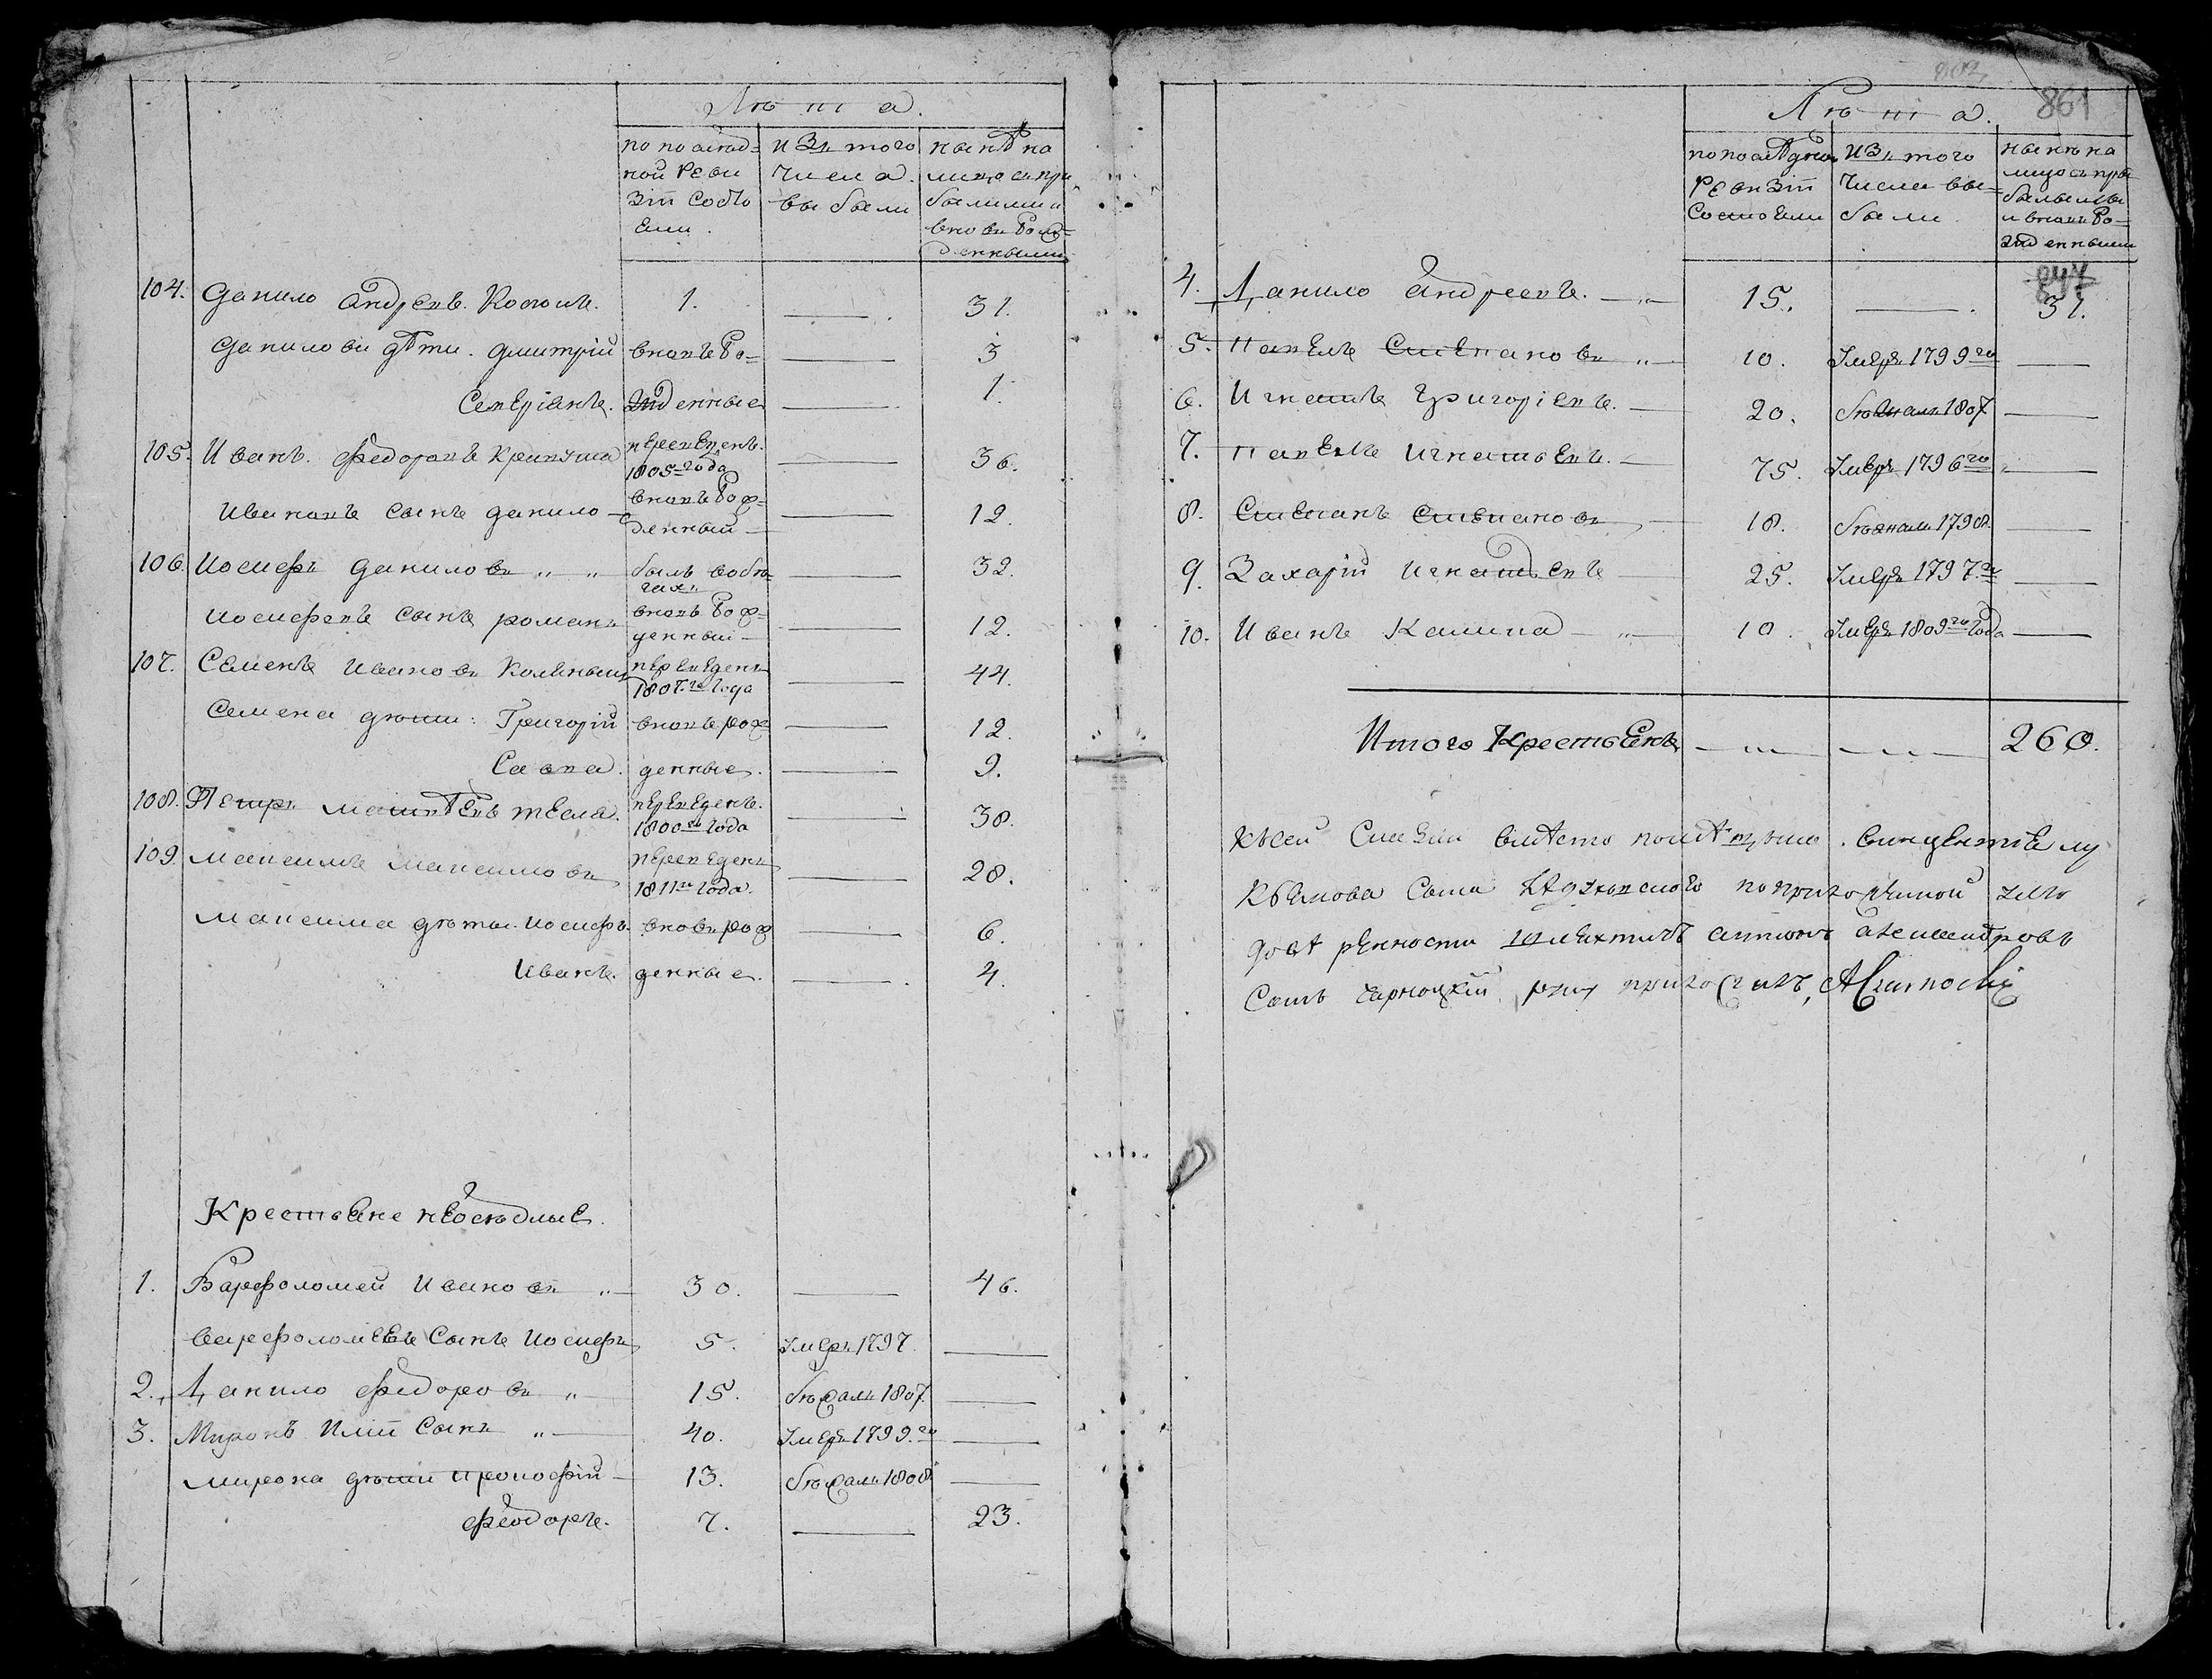 Лѣта.
по послѣд=
ной Реви
зіи состо
яли.
изъ того
числа.
выбыли
нынѣ на
лицо съ при
былыми и
вновь Рож=
денными
104. Данило Андреевъ. 1. — 31.
Данилови дѣти. Дмитрій вновь Ро= — 3
Северіанъ. жденные — 1.
105. Иванъ. Федоровъ переведенъ. 1805 года — 36.
Ивановъ сынъ Данило — вновь Рож=
денный — 12.
106. Иосифъ Данилов „ „ былъ въ бѣ=
гахъ — 32.
Иосифовъ сынъ Романъ вновь Рож=
денный — 12.
107. Семенъ Ивановъ переведенъ
1807.го Года — 44.
Семена дѣти: Григорій вновь рож — 12.
Савва. денные. — 9.
108. Петръ Матвѣевъ переведенъ.
1800го Года — 38.
109. Максимъ Максимовъ переведенъ
1811го Года. — 28.
Максима дѣти. Иосифъ. вновь рож — 6.
Иванъ. денные. — 4.
Крестьяне неосѣдлые.
1. Варфоломей Ивановъ „ — 30. — 46.
Варфоломеевъ Сынъ Иосифъ 5. Умеръ 1797. —
2. Данило Федоровъ „ — 15. бѣжалъ 1807. —
3. Миронъ Иліи Сынъ „ — 40. Умеръ 1799.го —
Мирона дѣти Прокофій — 13. бѣжалъ 1808. —
Феодоръ. 7. — 23.
802
861
Лѣта.
по послѣдной
Ревизіи
состояли
изъ того
числа вы=
были
нынѣ на
лицо съ при
былыми
и вновь Ро=
жденными
847
4. Данило Андреевъ. — „ 15. — 31.
5. Павелъ Степановъ „ — 10. Умеръ 1799го —
6. Игнатъ Григоріевъ. — 20. бѣжалъ 1807. —
7. Павелъ Игнатьевъ. — 75. Умеръ 1796го —
8. Степанъ Степановъ — 18. бѣжалъ 1798. —
9. Захарій Игнатьевъ — 25. Умеръ 1797.го —
10. Иванъ Калина — „ 10. Умеръ 1809го Года —
Итого Крестьянъ — „ — — „ — 260.
Къ сей Сказки вмѣсто помѣщика Винцентія
Сына по
довѣренности шляхтичъ Антонъ Александровъ
Сынъ Чарноцкій руку приложилъ,